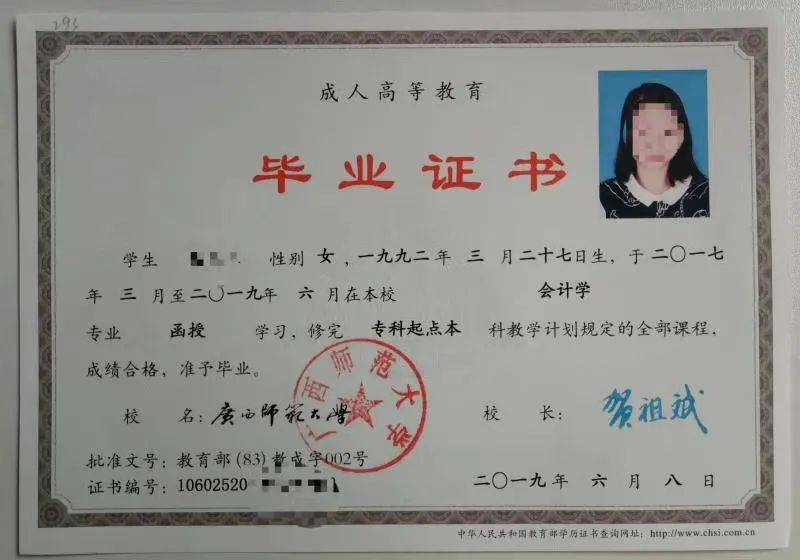 293
成人高等教育
毕业证书
学生 性别 女，一九九二年 三 月二十七日生，于二〇一七
年 三 月至二〇一九年 六 月在本校 会计学
专业 函授 学习，修完 专科起点本 科教学计划规定的全部课程，
成绩合格，准予毕业。
广西师范大学
校 名：廣西師範大學 校 长：贺祖斌
批准文号：教育部 (83) 教成字002号
证书编号：10602520 二〇一九年 六 月 八 日
中华人民共和国教育部学历证书查询网址：http://www.chsi.com.cn